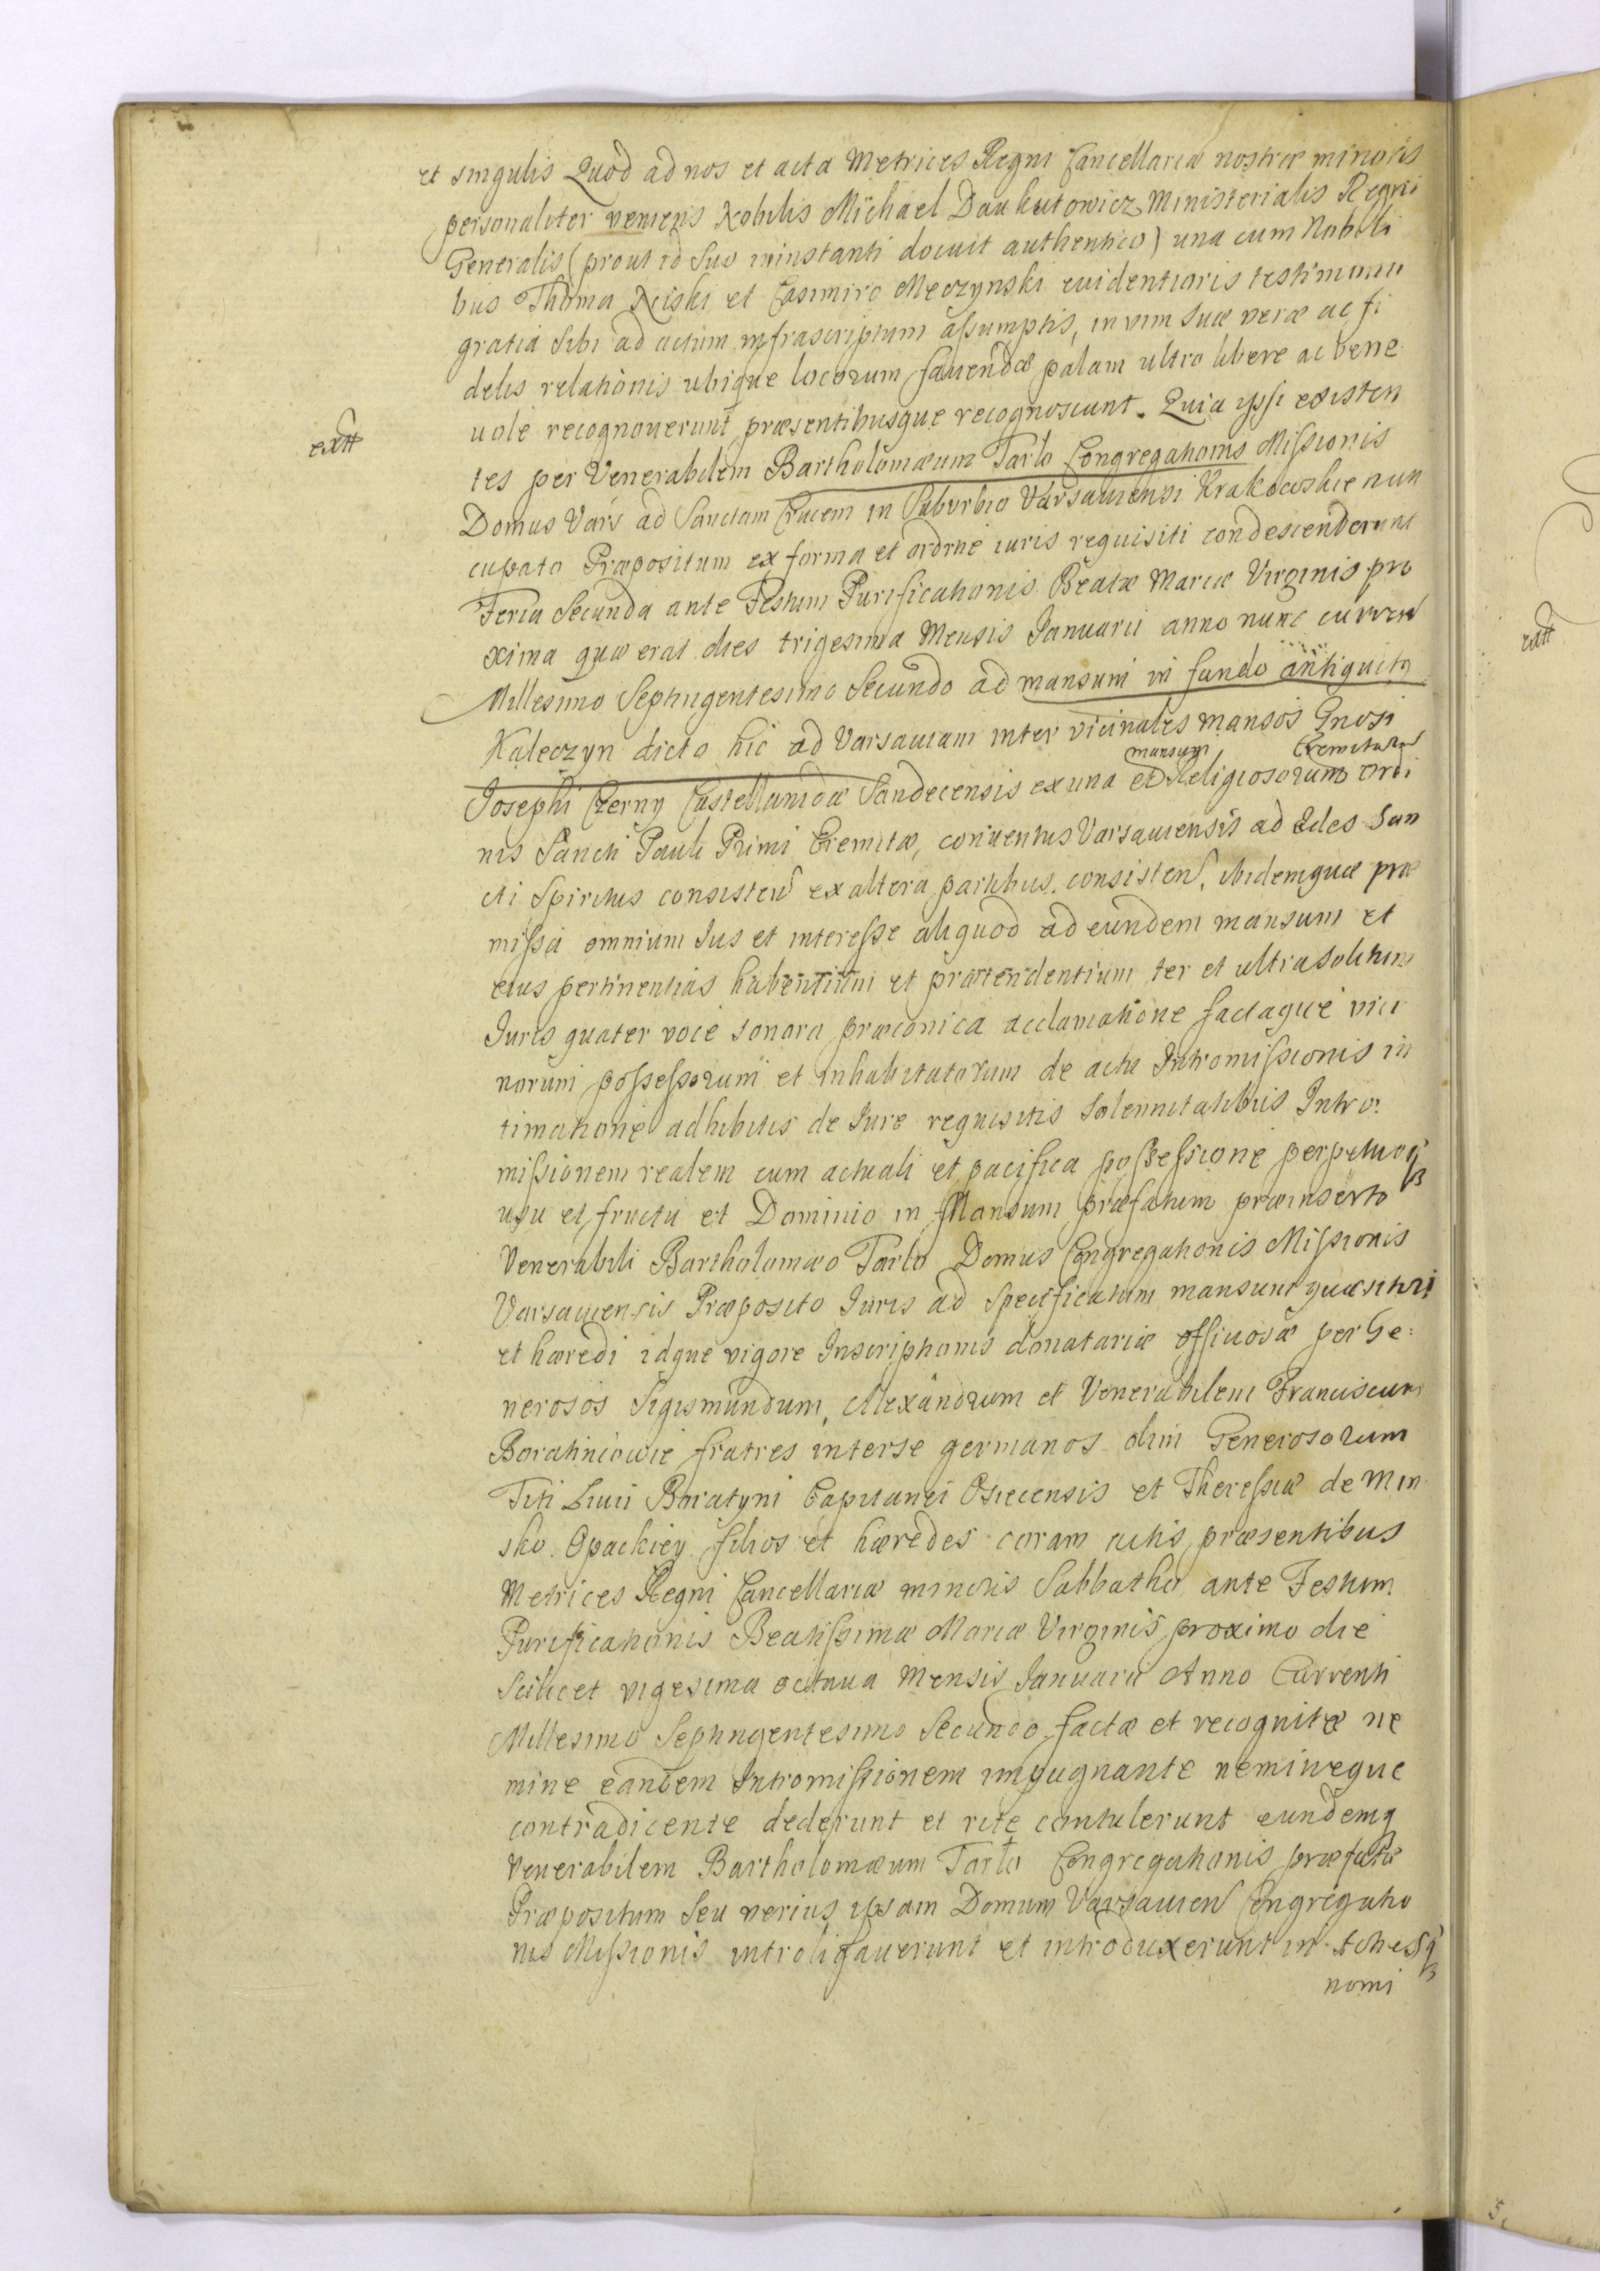 et singulis Quod ad nos et acta Metrices Regni Cancellariæ nostræ minoris
personaliter veniens Nobilis Michael Daukutowicz Ministerialis Regni
Generalis (prout id suo in instanti docuit authentico) una cum Nobili
bus Thoma et Casimiro Meczynski euidentiaris testimonii
gratia sibi ad actum infrascriptum assumptis, in vim suæ veræ ac fi
delis relationis ubique locorum fauendæ palam ultro libere ac bene
uole recognouerunt præsentibusque recognoscunt. Quia ipsi existen
extt
tes per Venerabilem Bartholomæum Tarlo Congregationis Missionis
Domus Vars ad Sanctam Crucem in Suburbio Varsauiensi Krakowskie nun
cupato Præpositum ex forma et ordine iuris requisiti condescenderunt
Feria Secunda ante Festum Purificationis Beatæ Mariæ Virginis pro
xima quæ erat dies trigesima Mensis Januarii anno nunc curren
Millesimo Septingentesimo Secundo ad mansum in fundo antiquitq
Kaleczyn dicto hic ad Varsauiam inter vicinales mansos Gnosi
mansum Eremitarum
Josephi Czerny Castellanidæ Sandecensis ex una et Religiosorum Ordi
nis Sancti Pauli Primi Eremitæ, conuentus Varsauiensis ad Ædes San
cti Spiritus consisten ex altera partibus consisten, ibidemque præ
missa omnium Jus et interesse aliquod ad eundem mansum et
eius pertinentias habentium et prætendentium ter et ultra solitum
Juris quater voce sonora præconica acclamatione factaque vici
norum possessorum et inhabitatorum de actu Intromissionis in
timatione adhibitis de Jure requisitis solennitatibus Intro:
missionem realem cum actuali et pacifica possessione perpetuoq3
usu et fructu et Dominio in Mansum præfatum præinserto
Venerabili Bartholomæo Tarlo Domus Congregationis Missionis
Varsauiensis Præposito Juris ad specificatum mansum quæsitori
et hæredi idque vigore Inscriptionis donatariæ per Ge:
nerosos Sigismundum, Alexandrum et Venerabilem Franciscum
Boratiniowie fratres inter se germanos olim Generosorum
Titi Liuii Boratyni Capitanei Osiecensis et Theressiæ de Min
sko Opackiey filios et hæredes coram actis præsentibus
Metrices Regni Cancellariæ minoris Sabbatho ante Festum
Purificationis Beatissimæ Mariæ Virginis proximo die
Scilicet vigesima octaua Mensis Januarii Anno Currenti
Millesimo Septingentesimo Secundo factæ et recognitæ ne
mine eandem Intromissionem impugnante nemineque
contradicente dederunt et rite contulerunt eundemq
Venerabilem Bartholomæum Tarlo Congregationis præfatæ
Præpositum seu verius ipsam Domum Varsauien Congregatio
nis Missionis introligauerunt et introduxerunt in
nomi
extt